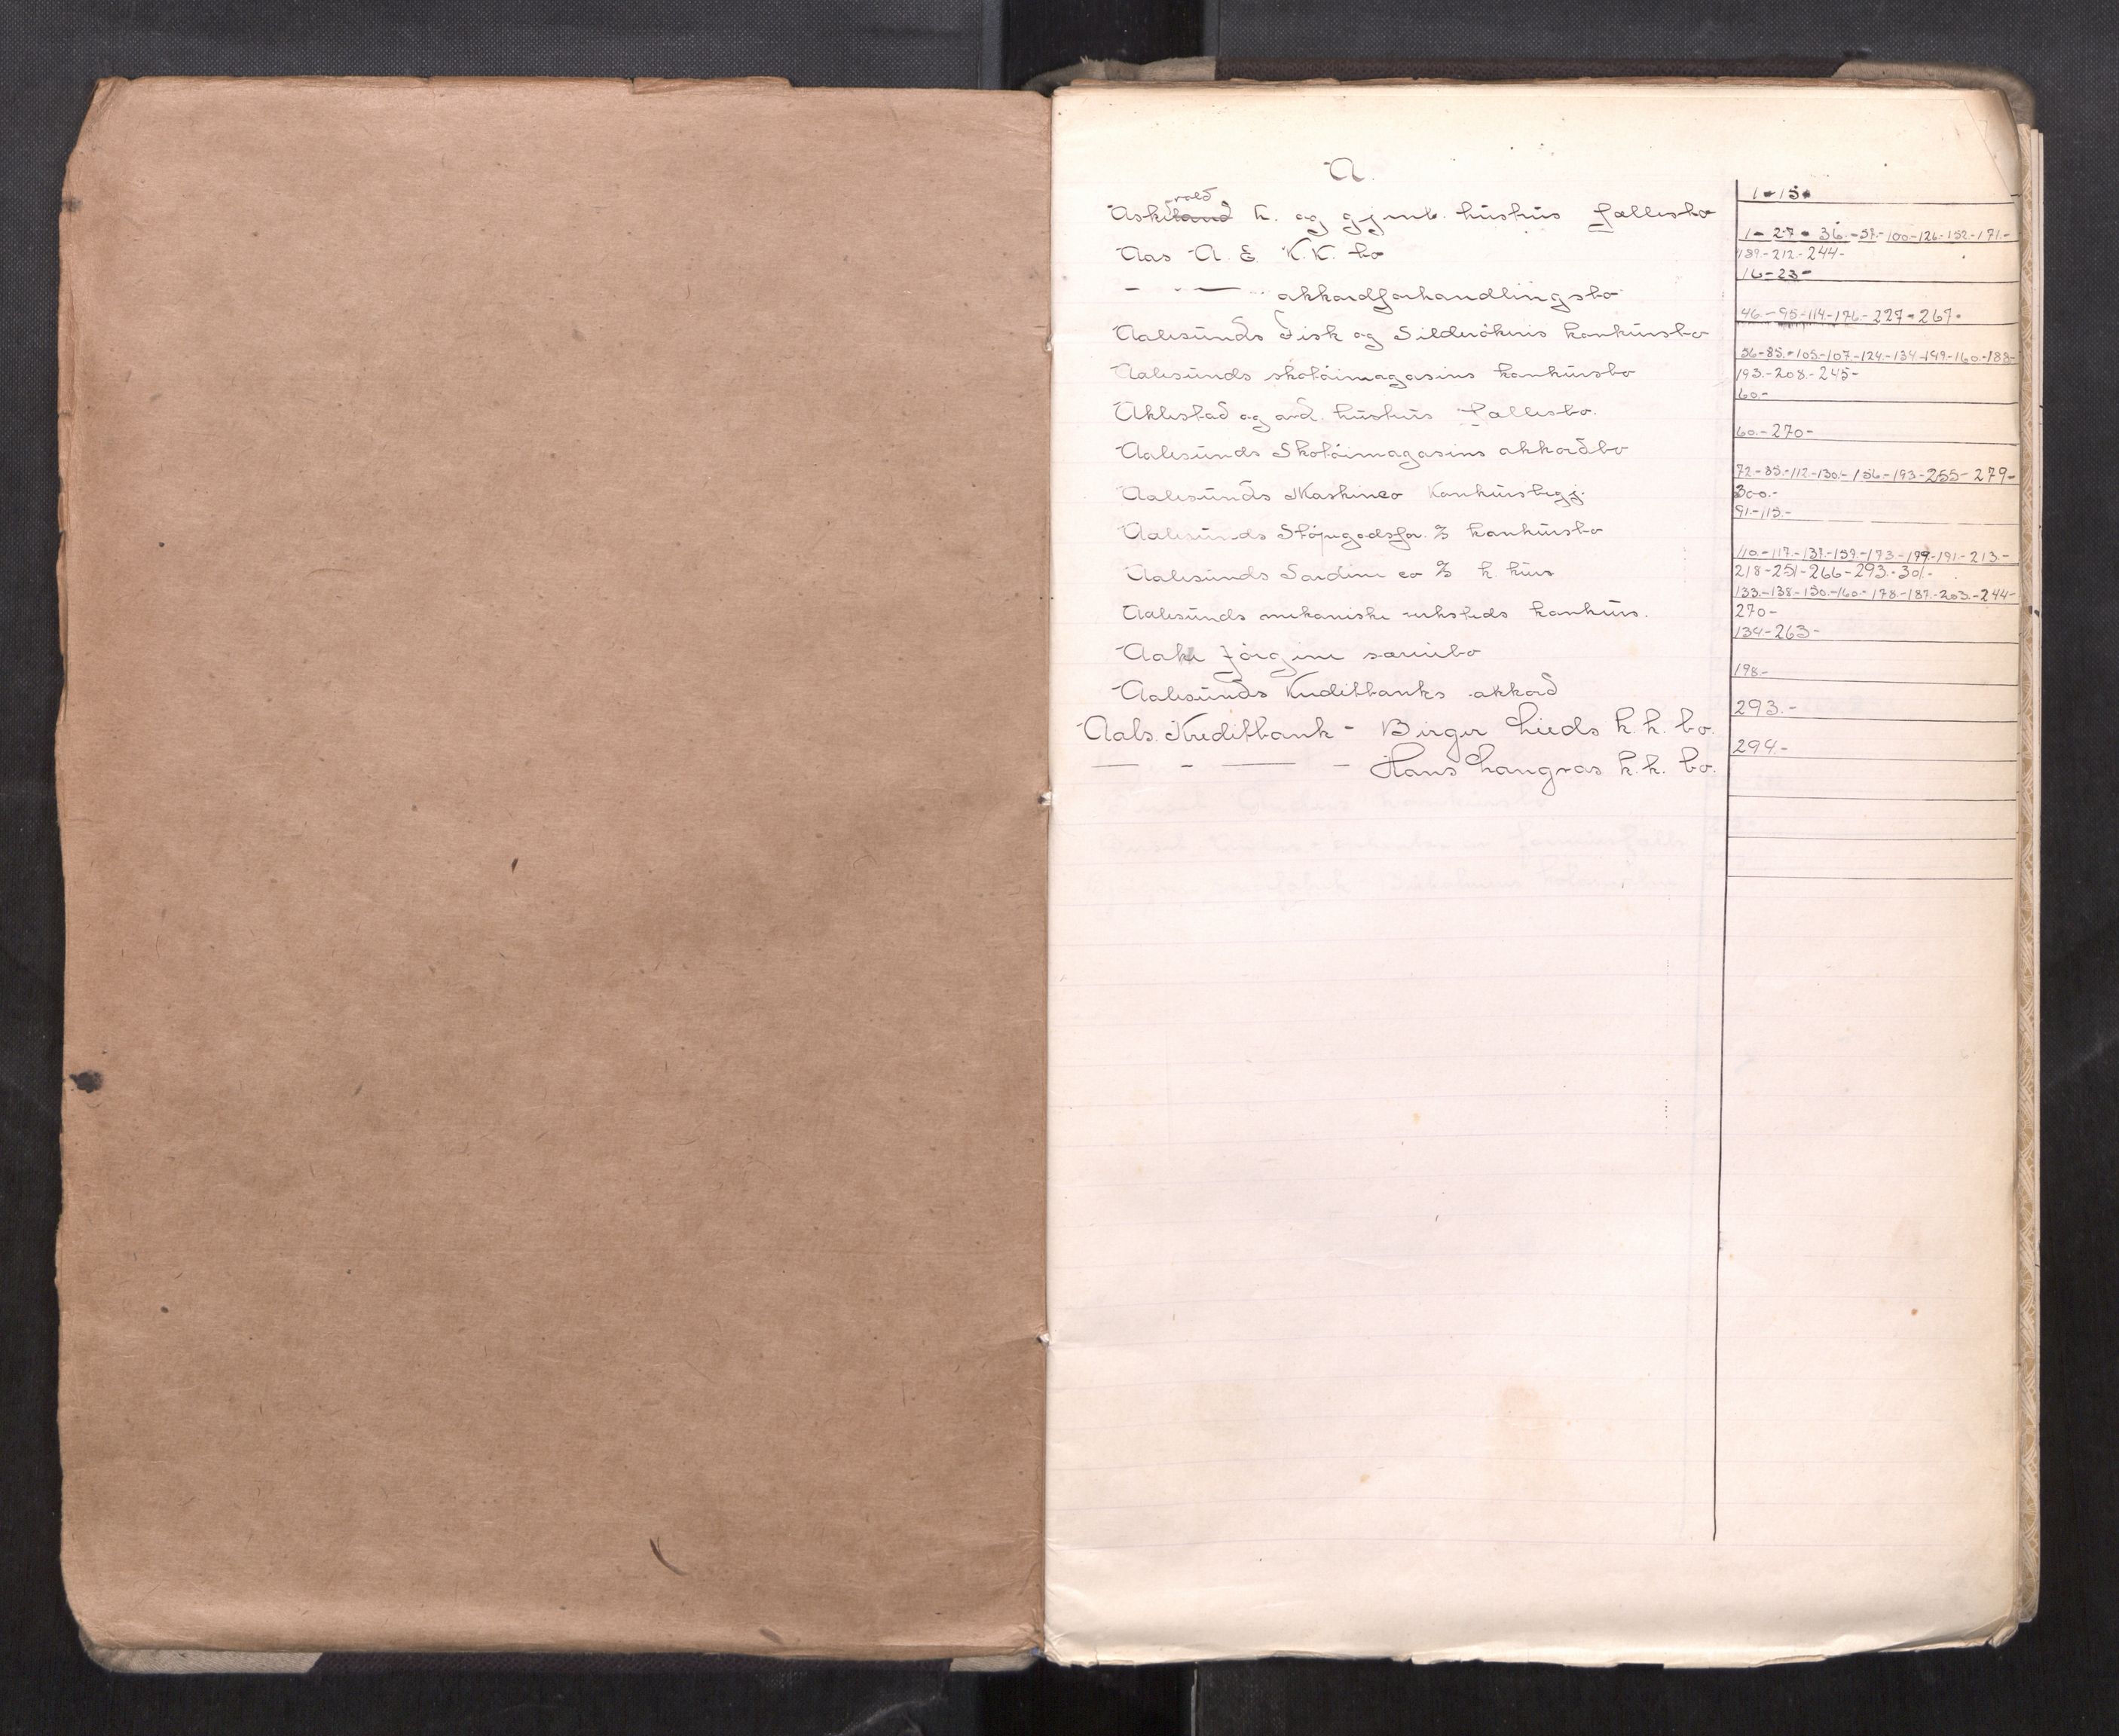 A.
vold
Askeland K. og gjenl. hustrus fællesbo
1 - 15 -
Aas A. E. K.K. bo
1 - 27 - 36. - 57. - 100. - 126. - 152. - 171. -
189. - 212. - 244 -
— " — akkordforhandlingsbo
16 - 23 -
Aalesunds Fisk og Silderökeris konkursbo
46. - 95 - 114. - 176. - 227 - 267 -
Aalesunds skotöimagasins konkursbo
56 - 85. - 105 - 107. - 124. - 134 - 149. - 160. - 188 -
193. - 208. - 245 -
Aklestad og avd. hustrus fællesbo.
60. -
Aalesunds Skotöimagasins akkordbo
60. - 270 -
Aalesunds Maskinco Konkursbegj.
72 - 85. - 112. - 130. - 156. - 193 - 255 - 279 -
300. -
Aalesunds Stöpegodsfor. % konkursbo
91. - 115. -
Aalesunds Sardin co % k. kurs
110. - 117. - 137. - 159. - 173. - 179. - 191. - 213. -
218 - 251 - 266 - 293. - 301. -
Aalesunds mekaniske verksteds konkurs.
133. - 138 - 150. - 160. - 178. - 187. - 203. - 244 -
270 -
Aake Jörgine særeiebo
134 - 263 -
Aalesunds Kreditbanks akkord
198. -
Aals. Kreditbank - Birger Lieds k.k. bo.
293. -
— - — - Hans Langvas k.k. bo.
294. -